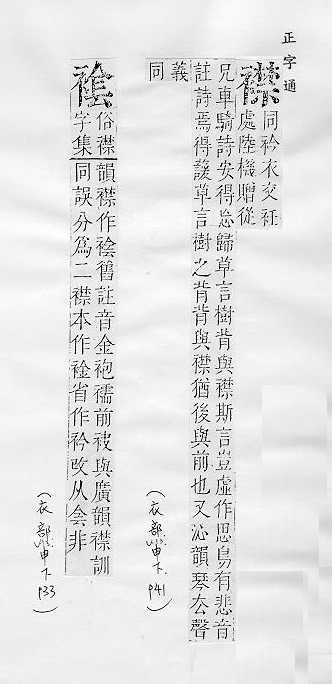 正字通
襟
同衿衣交衽
處陸機贈從
兄車騎詩安得忘歸草言樹背與襟斯言豈虛作思鳥有悲音
註詩焉得諼草言樹之背背與襟猶後與前也又沁韻琴去聲
義
同
(衣部 申下 P41)
俗襟
字集
韻襟作舊註音金袍襦前袂與廣韻襟訓
同誤分爲二襟本作省作衿改从会非
(衣部 申下 P33)